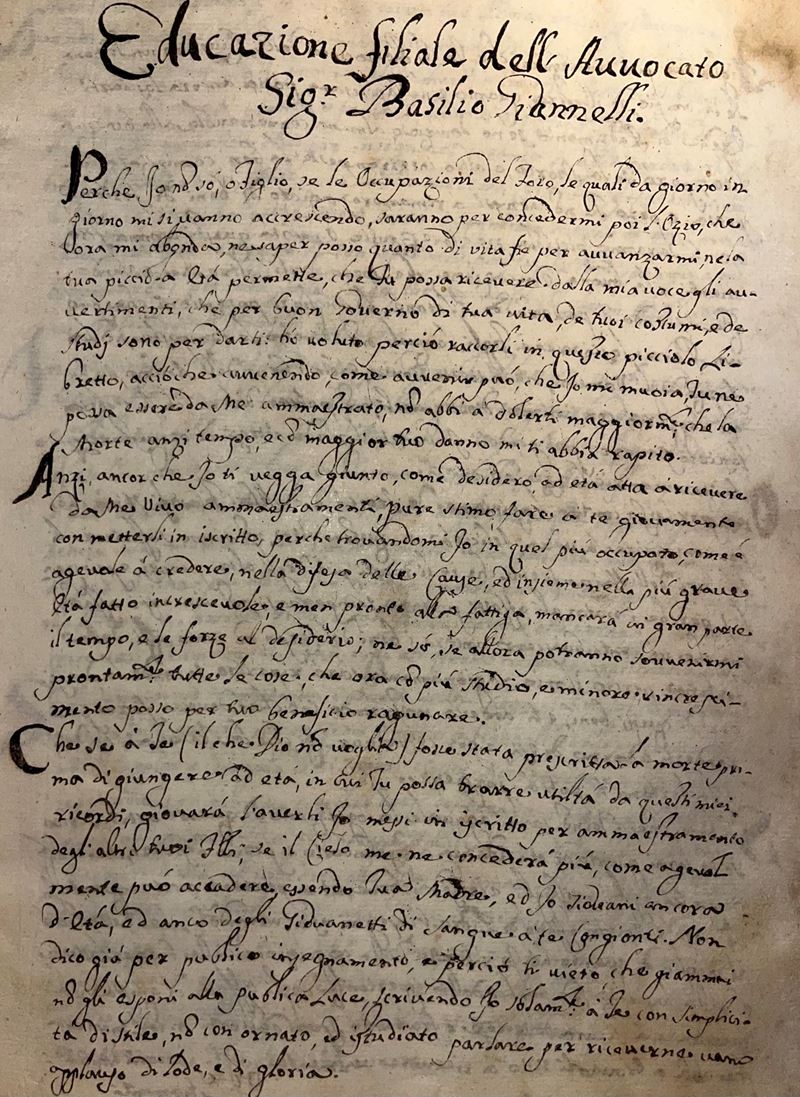 Educazione filiale dell'Auvocato
Sig.r Basilio Giannelli.
Perche Jo nõ só, o Figlio, se le Occupazioni del Foro, le quali da giorno in
giorno mi si vanno accrescendo, saranno per concedermi poi l'Ozio, che
hora mi abonda, ne saper posso quanto di vita sie per avvanzarmi, ne la
tua picciola Etá permette, che Tu possa ricevere dalla mia voce gli au-
vertimenti, che per buon Governo di tua vita, de tuoi costumi, e de
studj sono per darti: hó voluto perció raccorli in questo picciolo Li-
bretto, accióche avvenendo, come avvenir puó, che Jo mi muoia, Tu ne
possa essere da Me ammaestrato, nõ abbi á dolerti maggiorm.te, che la
Morte anzi tempo, e cõ maggior tuo danno mi ti abbia rapito.
Anzi, ancor che Jo ti vegga giunto, come desidero, ad etá atta á ricevere
da Me Vivo ammaestramenti, pure stimo, fare á te giovamento
con metterli in iscritto, perche trovandomi Jo in quel piú occupato, come é
agevole á credere, nella difesa delle Cause, ed insieme nella piú grave
Etá fatto increscevole, e men pronto alla fattiga, mancará in gran parte
il tempo, e le forze al desiderio; ne só, se allora potranno souvenirmi
prontam.te tutte le cose, che ora cõ piú studio, e minore rincresci-
mento posso per tuo beneficio ragunare.
Che se á Te (il che Dio nõ voglia) fosse stata prescritta la morte pri-
ma di giungere ad etá, in cui Tu possa trarre utiltá da questi miei
ricordi, giovará l'averli Jo messi in iscritto per ammaestramento
degli altri tuoi Flli, se il Cielo me ne concederá piú, come agevol
mente puó accadere, essendo Tua Madre, ed Jo Giovani ancora
d'Etá, ed anco degli Giovanetti di sangue á te Congionti. Non
dico giá per publico insegnamento, e perció ti vieto che giammai
nõ gli esponi alla publica Luce, scrivendo Jo solam.te á Te con simplici-
tá di stile, nõ con ornato, ed istudiato parlare per riceverne vano
applauso di Lode, e di gloria.